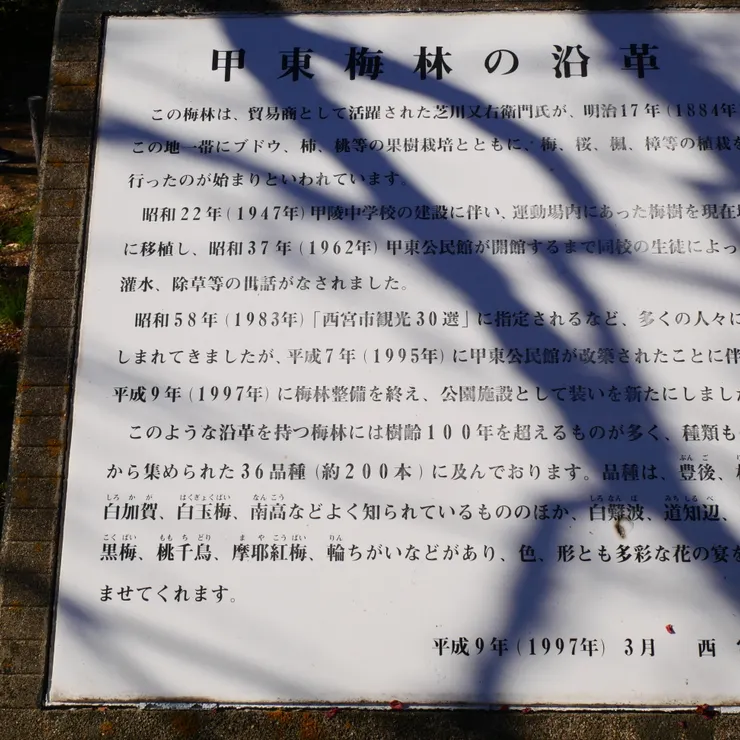 甲東梅林の沿革
この梅林は、貿易商として活躍された芝川又右衛門氏が、明治17年(1884年
この地一帯にブドウ、柿、桃等の果樹栽培とともに、梅、桜、楓、樟等の植栽を
行ったのが始まりといわれています。
昭和22年(1947年)甲陵中学校の建設に伴い、運動場内にあった梅樹を現在
に移植し、昭和37年(1962年)甲東公民館が開館するまで同校の生徒によっ
灌水、除草等の世話がなされました。
昭和58年(1983年)「西宮市観光30選」に指定されるなど、多くの人々に
しまれてきましたが、平成7年(1995年)に甲東公民館が改築されたことに伴
平成9年(1997年)に梅林整備を終え、公園施設として装いを新たにしました
このような沿革を持つ梅林には樹齢100年を超えるものが多く、種類も
ぶんご
から集められた36品種(約200本)に及んでおります。品種は、豊後、
しろかが はくぎょくばい なんこう しろなんば みちしるべ
白加賀、白玉梅、南高などよく知られているもののほか、白難波、道知辺、
こくばい ももちどり まやこうばい りん
黒梅、桃千鳥、摩耶紅梅、輪ちがいなどがあり、色、形とも多彩な花の宴を
ませてくれます。
平成9年(1997年) 3月 西